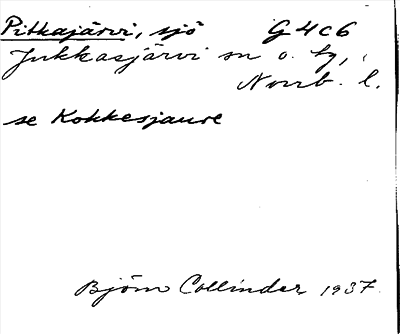 Pitkajärvi, sjö G4c6
Jukkasjärvi sn o. by,
Norrb. l.
se Kokkesjaure
Björn Collinder 1937.